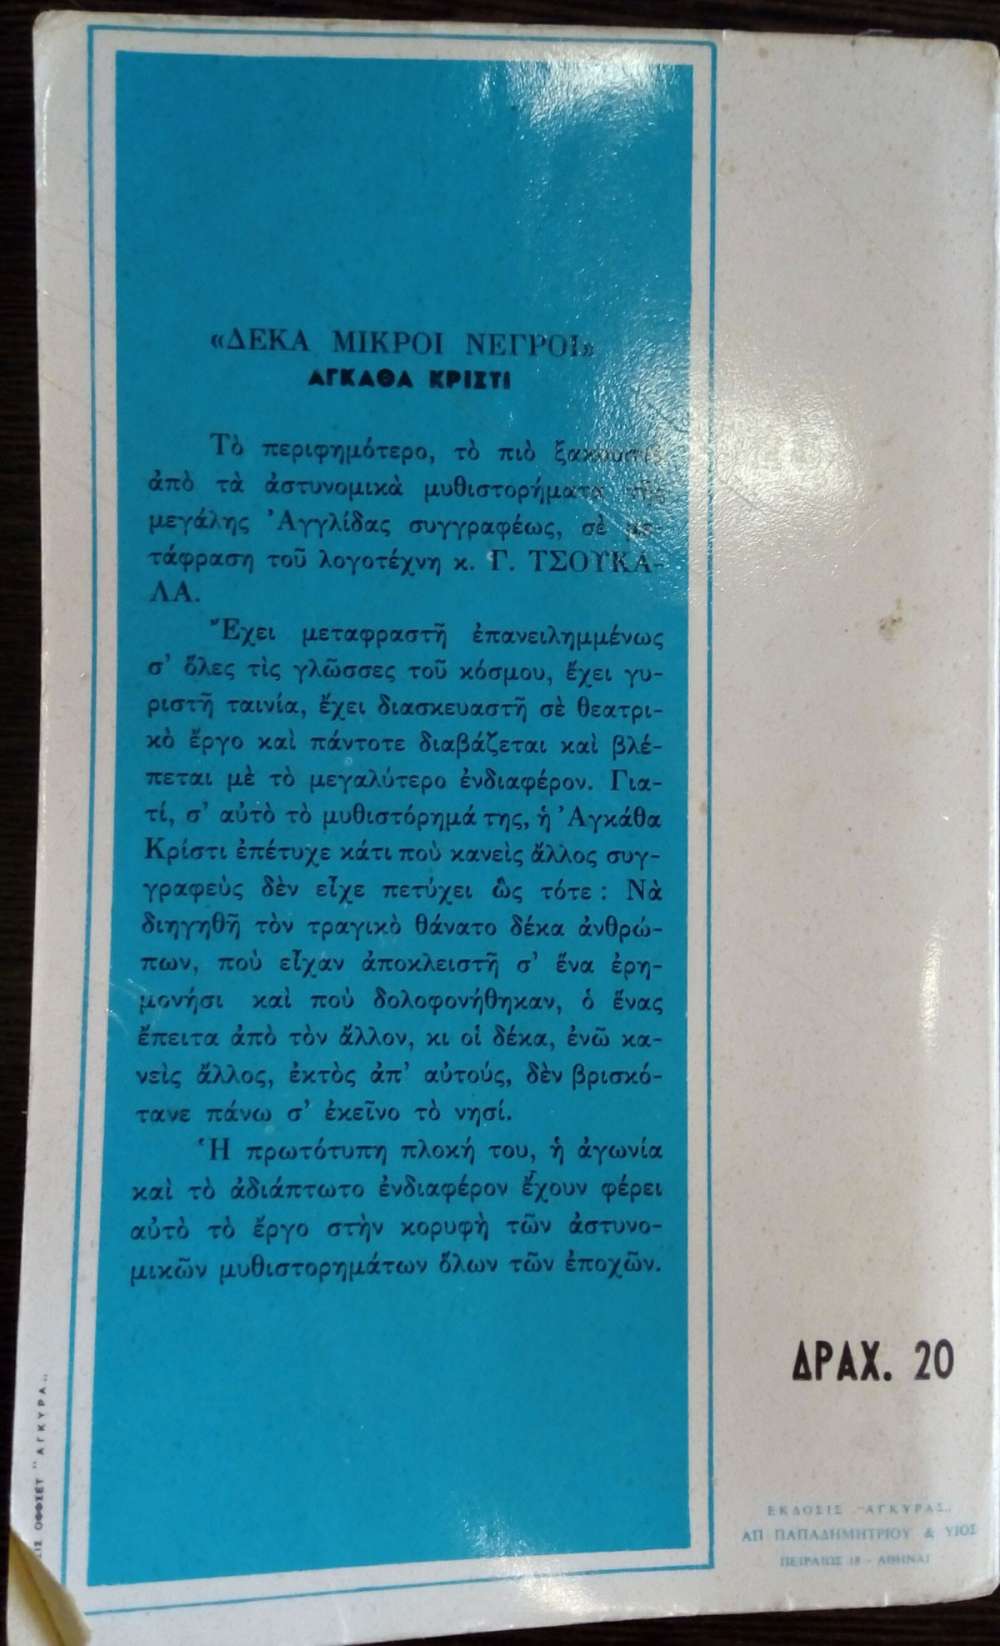 «ΔΕΚΑ ΜΙΚΡΟΙ ΝΕΓΡΟΙ»
ΑΓΚΑΘΑ ΚΡΙΣΤΙ
Τὸ περιφημότερο, τὸ πιὸ
ἀπὸ τὰ ἀστυνομικὰ μυθιστορήματα τῆς
μεγάλης Ἀγγλίδας συγγραφέως, σὲ με-
τάφραση τοῦ λογοτέχνη κ. Γ. ΤΣΟΥΚΑ-
ΛΑ.
Ἔχει μεταφραστῆ ἐπανειλημμένως
σ' ὅλες τὶς γλῶσσες τοῦ κόσμου, ἔχει γυ-
ριστῆ ταινία, ἔχει διασκευαστῆ σὲ θεατρι-
κὸ ἔργο καὶ πάντοτε διαβάζεται καὶ βλέ-
πεται μὲ τὸ μεγαλύτερο ἐνδιαφέρον. Για-
τί, σ' αὐτὸ τὸ μυθιστόρημά της, ἡ Ἀγκάθα
Κρίστι ἐπέτυχε κάτι ποὺ κανεὶς ἄλλος συγ-
γραφεὺς δὲν εἶχε πετύχει ὣς τότε : Νὰ
διηγηθῆ τὸν τραγικὸ θάνατο δέκα ἀνθρώ-
πων, ποὺ εἶχαν ἀποκλειστῆ σ' ἕνα ἐρη-
μονήσι καὶ ποὺ δολοφονήθηκαν, ὁ ἕνας
ἔπειτα ἀπὸ τὸν ἄλλον, κι οἱ δέκα, ἐνῶ κα-
νεὶς ἄλλος, ἐκτὸς ἀπ' αὐτούς, δὲν βρισκό-
τανε πάνω σ' ἐκεῖνο τὸ νησί.
Ἡ πρωτότυπη πλοκή του, ἡ ἀγωνία
καὶ τὸ ἀδιάπτωτο ἐνδιαφέρον ἔχουν φέρει
αὐτὸ τὸ ἔργο στὴν κορυφὴ τῶν ἀστυνο-
μικῶν μυθιστορημάτων ὅλων τῶν ἐποχῶν.
ΔΡΑΧ. 20
ΕΚΔΟΣΙΣ „ΑΓΚΥΡΑΣ„
ΑΠ ΠΑΠΑΔΗΜΗΤΡΙΟΥ & ΥΙΟΣ
ΠΕΙΡΑΙΩΣ 18 - ΑΘΗΝΑΙ
ΟΦΦΣΕΤ "ΑΓΚΥΡΑ„